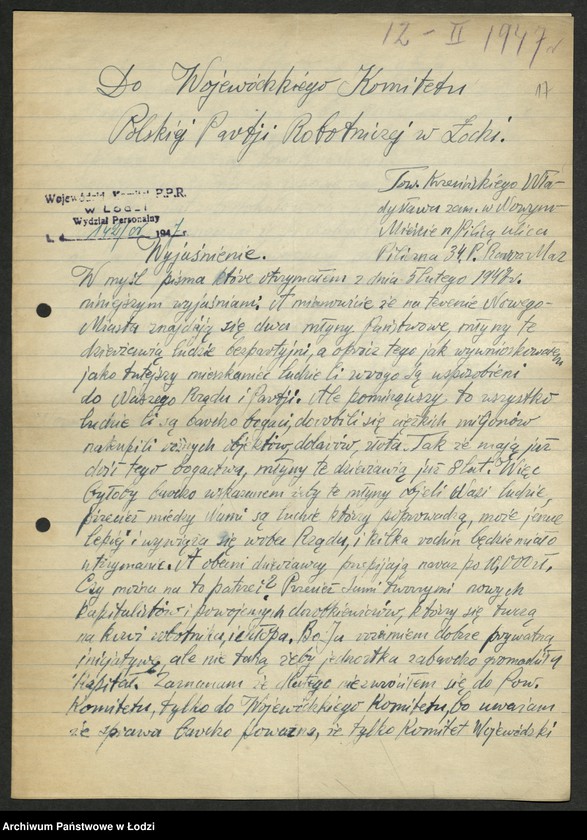 12 – II 1947 r
17
Do Wojewódzkiego Komitetu
Polskiej Partji Robotniczej w Łodzi.
Tow. Krzesińskiego Wła-
dysława zam. w Nowym-
Mieście n/Pilicą ulica
Pilczna 34. P. Rawa Maz
Wojewódzki Komitet P.P.R.
w Łodzi
Wydział Personalny
L. d. 194 7 r.
Wyjaśnienie.
W myśl pisma które otrzymałem z dnia 5 lutego 1947 r.
niniejszym wyjaśniam. A mianowicie że na terenie Nowego-
Miasta znajdują się dwa młyny państwowe, młyny te
dzierżawią ludzie bezpartyjni, a oprócz tego jak wywnioskowałem
jako tutejszy mieszkaniec ludzie ci wrogo są usposobieni
do Naszego Rządu i Partji. Ale pominąwszy, to wszystko
ludzie ci są bardzo bogaci, dorobili się ciężkich miljonów
nakupili różnych objektów, dolarów, złota. Tak że mają już
dość tego bogactwa, młyny te dzierżawią już 8 lat. Więc
byłoby bardzo wskazanem żeby te młyny objeli Nasi ludzie,
przecież miedzy Nami są ludzie którzy poprowadzą, może jeszcze
lepiej i wywiążą się wobec Rządu, i kilka rodzin będzie miało
utrzymanie. A obecni dzierżawcy przepijają naraz po 10,000 zł.
Czy można na to patrzeć? Przecież sami tworzymy nowych
kapitalistów i powojennych dorobkiewiczów, którzy się tuczą
na krwi robotnika, i chłopa. Bo Ja rozumiem dobrze prywatną
inicjatywę, ale nie taką żeby jednostka zabardzo gromadziła
kapitał. Zaznaczam że dlatego niezwróciłem się do Pow.
Komitetu, tylko do Wojewódzkiego Komitetu, bo uważam
że sprawa bardzo poważna, że tylko Komitet Wojewódzki
Archiwum Państwowe w Łodzi